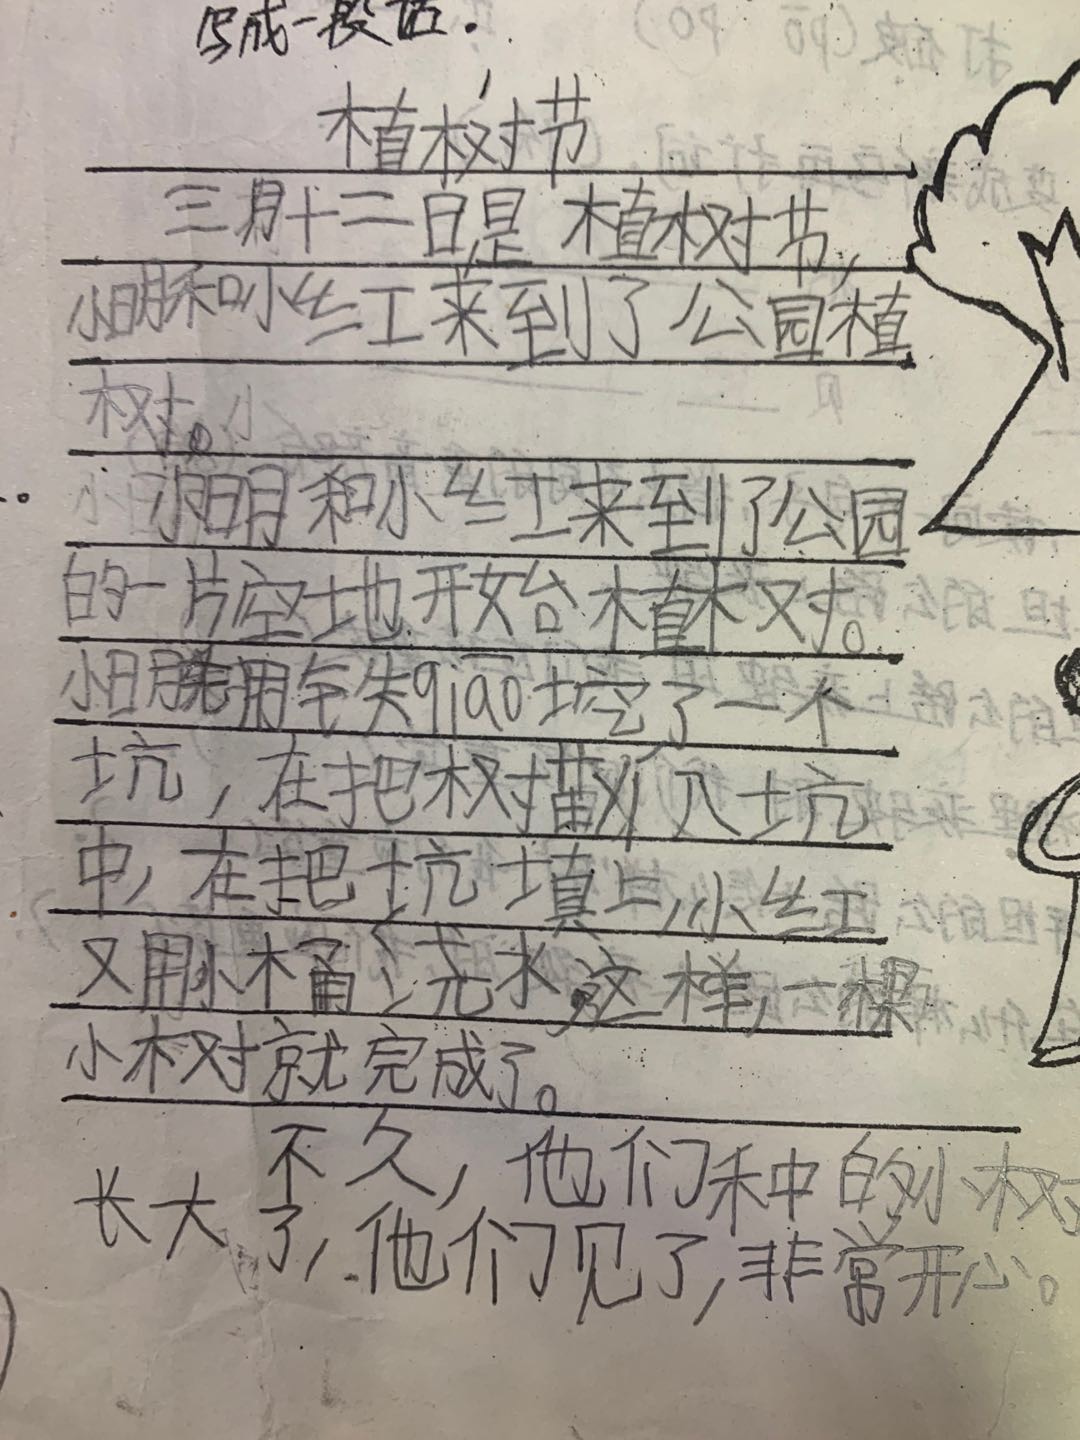 写成一段话.
植树节
三月十二日是植树节,
小明和小红来到了公园植
树。
小明和小红来到了公园
的一片空地开始植树。
小明先用铁失qiāo挖了一个
坑,在把树描入坑
中,在把坑填上,小红
又用小桶浇水,这样,一棵
小树就完成了。
不久,他们种的小树
长大了,他们见了,非常开心。